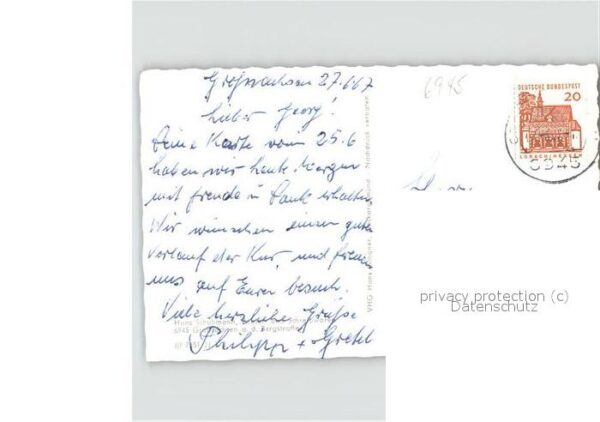 Großsachsen 27.6.67
Lieber Georg!
Deine Karte vom 25.6
haben wir heute Morgen
mit freude u Dank erhalten,
Wir wünschen einen guten
Verlauf der Kur, und freuen
uns auf Euren besuch.
Viele herzliche Grüße
Philipp + Gretel
6945 a. d. Bergstraße
VHG Hans Nachdruck verboten
6945
DEUTSCHE BUNDESPOST
20
6945
privacy protection (c)
Datenschutz